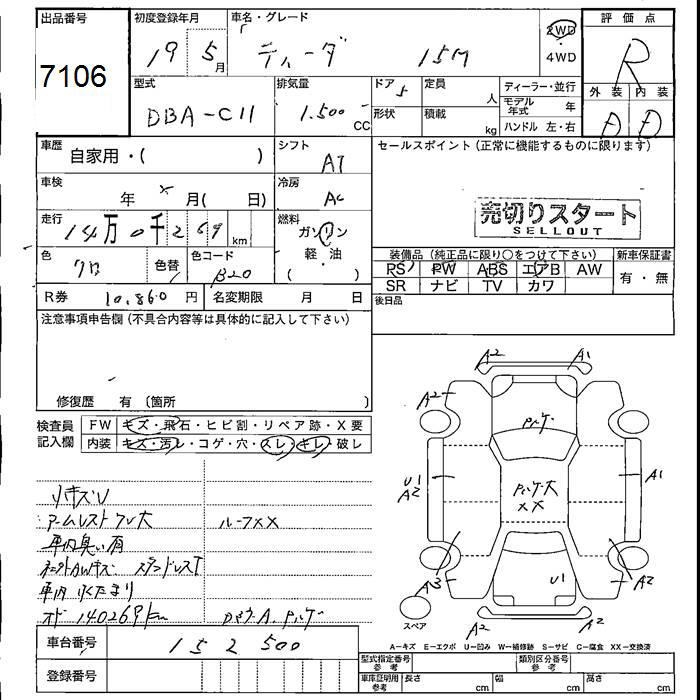 出品番号 7106
初度登録年月 19 5月
車名・グレード ティーダ 15M
2WD・4WD
評価点 R
型式 DBA-C11
排気量 1.500 CC
ドア 5
形状
定員 人
積載 kg
ディーラー・並行
モデル年式 年
ハンドル 左・右
外装 内装
D
車歴 自家用・( )
シフト AT
セールスポイント(正常に機能するものに限ります)
車検 年 月( 日)
冷房 AC
売切りスタート
SELLOUT
走行 14万0千269km
燃料 ガソリン・軽・油・( )
色 クロ
色替
色コード B20
装備品(純正品に限り○をつけて下さい)
新車保証書
PS PW ABS エアB AW
SR ナビ TV カワ
有・無
後日品
R券 10.860 円
名変期限 月 日
注意事項申告欄(不具合内容等は具体的に記入して下さい)
修復歴 有(箇所 )
検査員記入欄
FW キズ・飛石・ヒビ割・リペア跡・X要
内装 キズ・汚レ・コゲ・穴・スレ・キレ・破レ
リキズU
アームレストフレ大
ルーフXX
車内臭い有
車内
オド 140269km
車台番号 152500
登録番号
A2 A1
A2
U1
A2
A1
XX
U1
A3
A2
A2
A2
スペア
A−キズ E−エクボ U−凹み W−補修跡 S−サビ C−腐食 XX−交換済
型式指定番号 参考
類別区分番号 参考
車庫証明用 参考
長さ cm
幅 cm
高さ cm